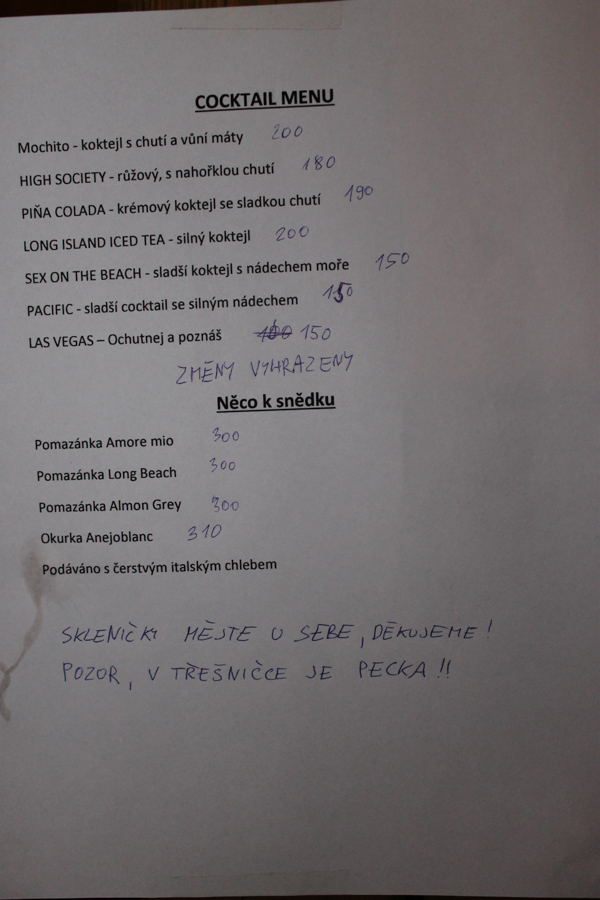 COCKTAIL MENU
Mochito - koktejl s chutí a vůní máty 200
HIGH SOCIETY - růžový, s nahořklou chutí 180
PIŇA COLADA - krémový koktejl se sladkou chutí 190
LONG ISLAND ICED TEA - silný koktejl 200
SEX ON THE BEACH - sladší koktejl s nádechem moře 150
PACIFIC - sladší cocktail se silným nádechem 150
LAS VEGAS – Ochutnej a poznáš 150
ZMĚNY VYHRAZENY
Něco k snědku
Pomazánka Amore mio 300
Pomazánka Long Beach 300
Pomazánka Almon Grey 300
Okurka Anejoblanc 310
Podáváno s čerstvým italským chlebem
SKLENIČKY MĚJTE U SEBE, DĚKUJEME!
POZOR, V TŘEŠNIČCE JE PECKA!!